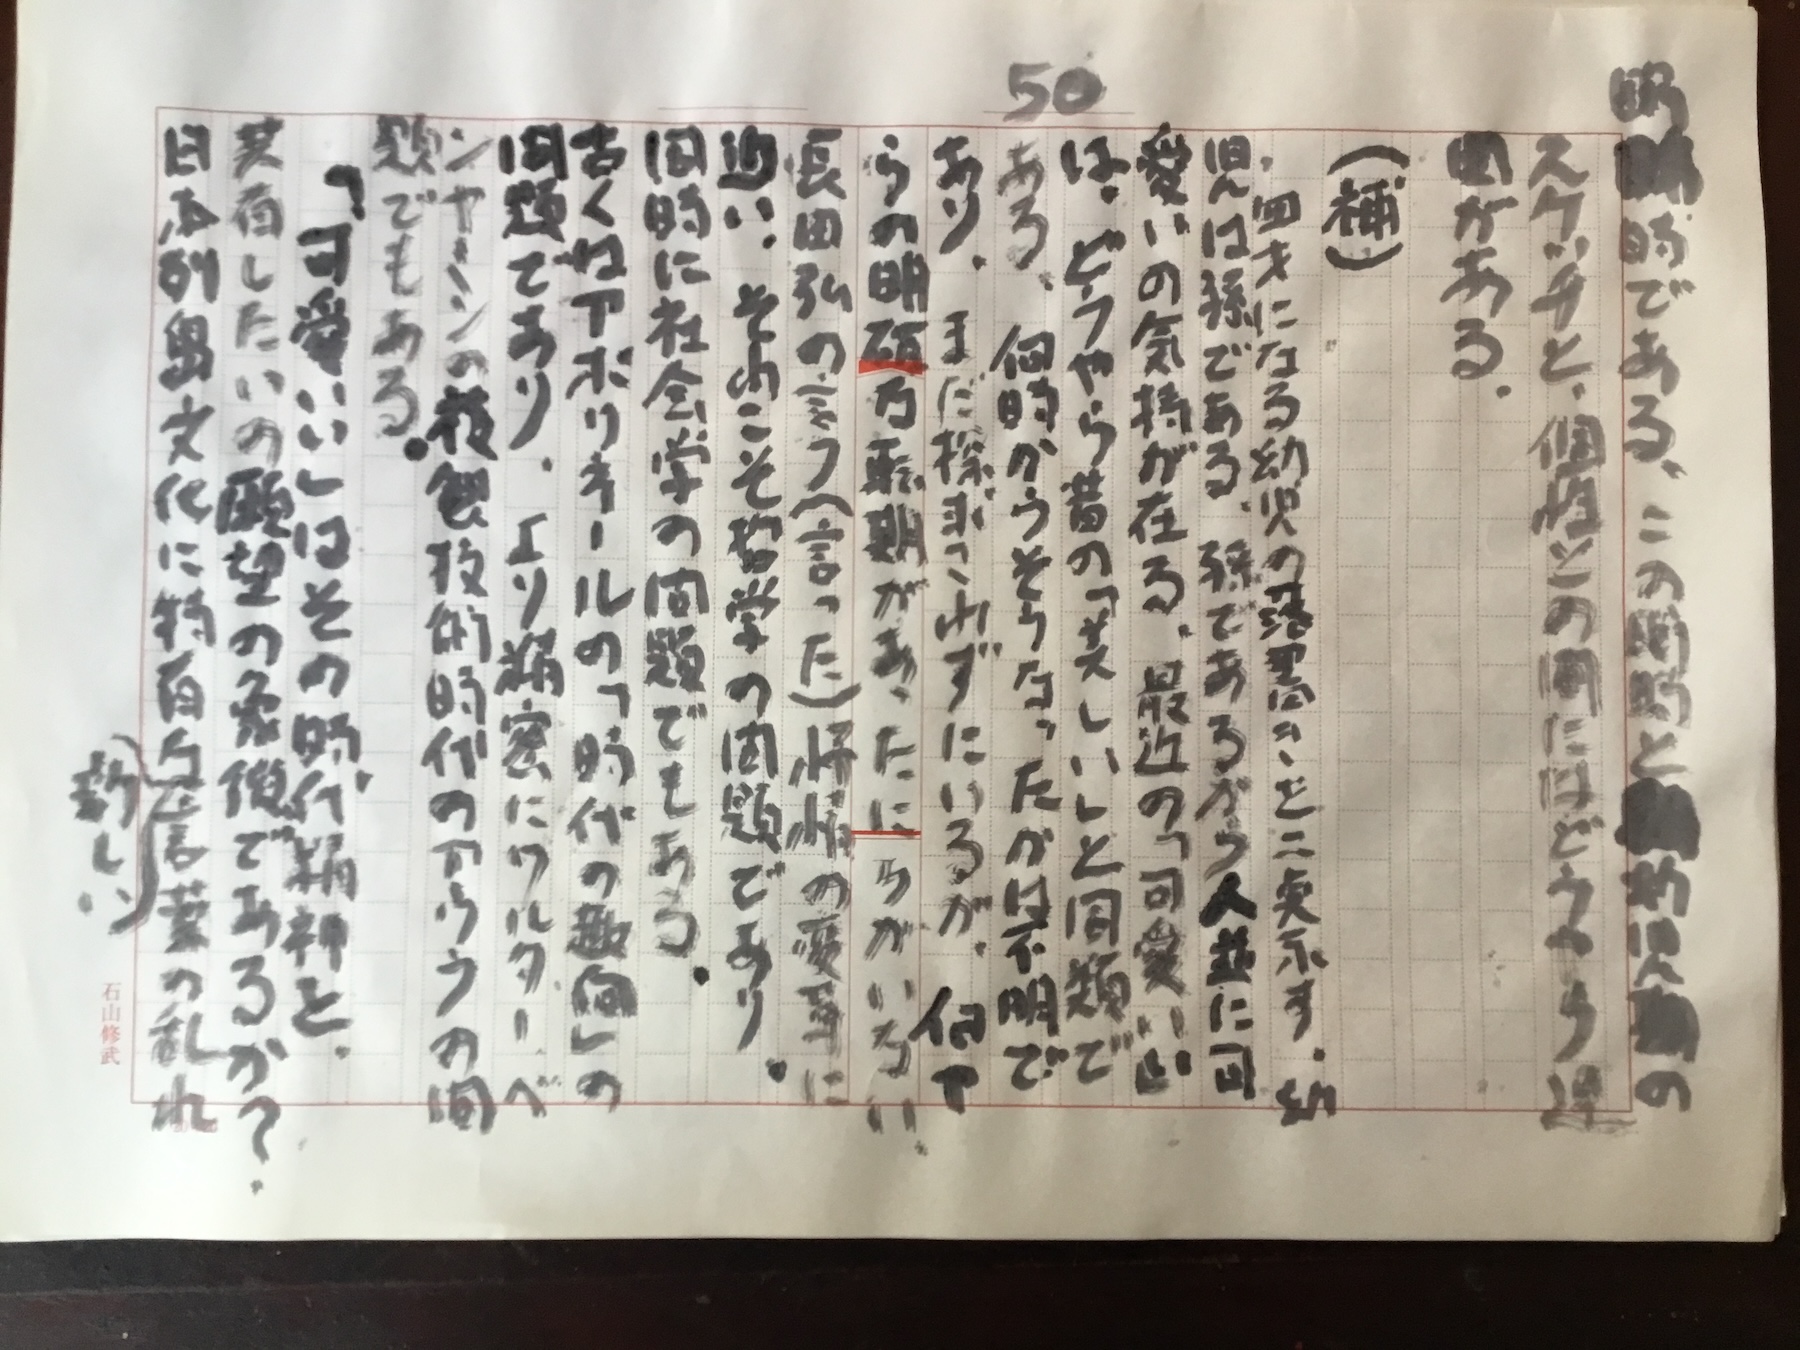 50
時である、この時と幼児の
スケッチと、個性との間にはどうやら
由がある。
(補)
四才になる幼児の落書のことこ実示す。幼
児は孫である、孫であるから人並に可
愛いの気持が在る。最近の「可愛い」
は、どうやら昔の「美しい」と同類で
ある、何時からそうなったかは不明で
あり、まだ探求されずにいるが、何
らの明確な転期があったにちがいない
長田弘の言う(言った)の変革に
近い、それこそ哲学の問題であり、
同時に社会学の問題でもある。
古くはアポリネールの「時代の趣向」の
問題であり、より精密にワルター・ベ
ンヤミンの複製技術時代のアウラの問
題でもある。
「可愛い」はその時代精神を、
共有したいの願望の象徴であるか?
日本列島文化に特有な言葉の乱れ
(新しい)
石山修武